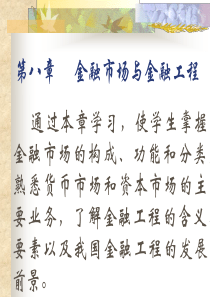 第八章 金融市场与金融工程
通过本章学习，使学生掌握
金融市场的构成、功能和分类
熟悉货币市场和资本市场的主
要业务，了解金融工程的含义
要素以及我国金融工程的发展
前景。